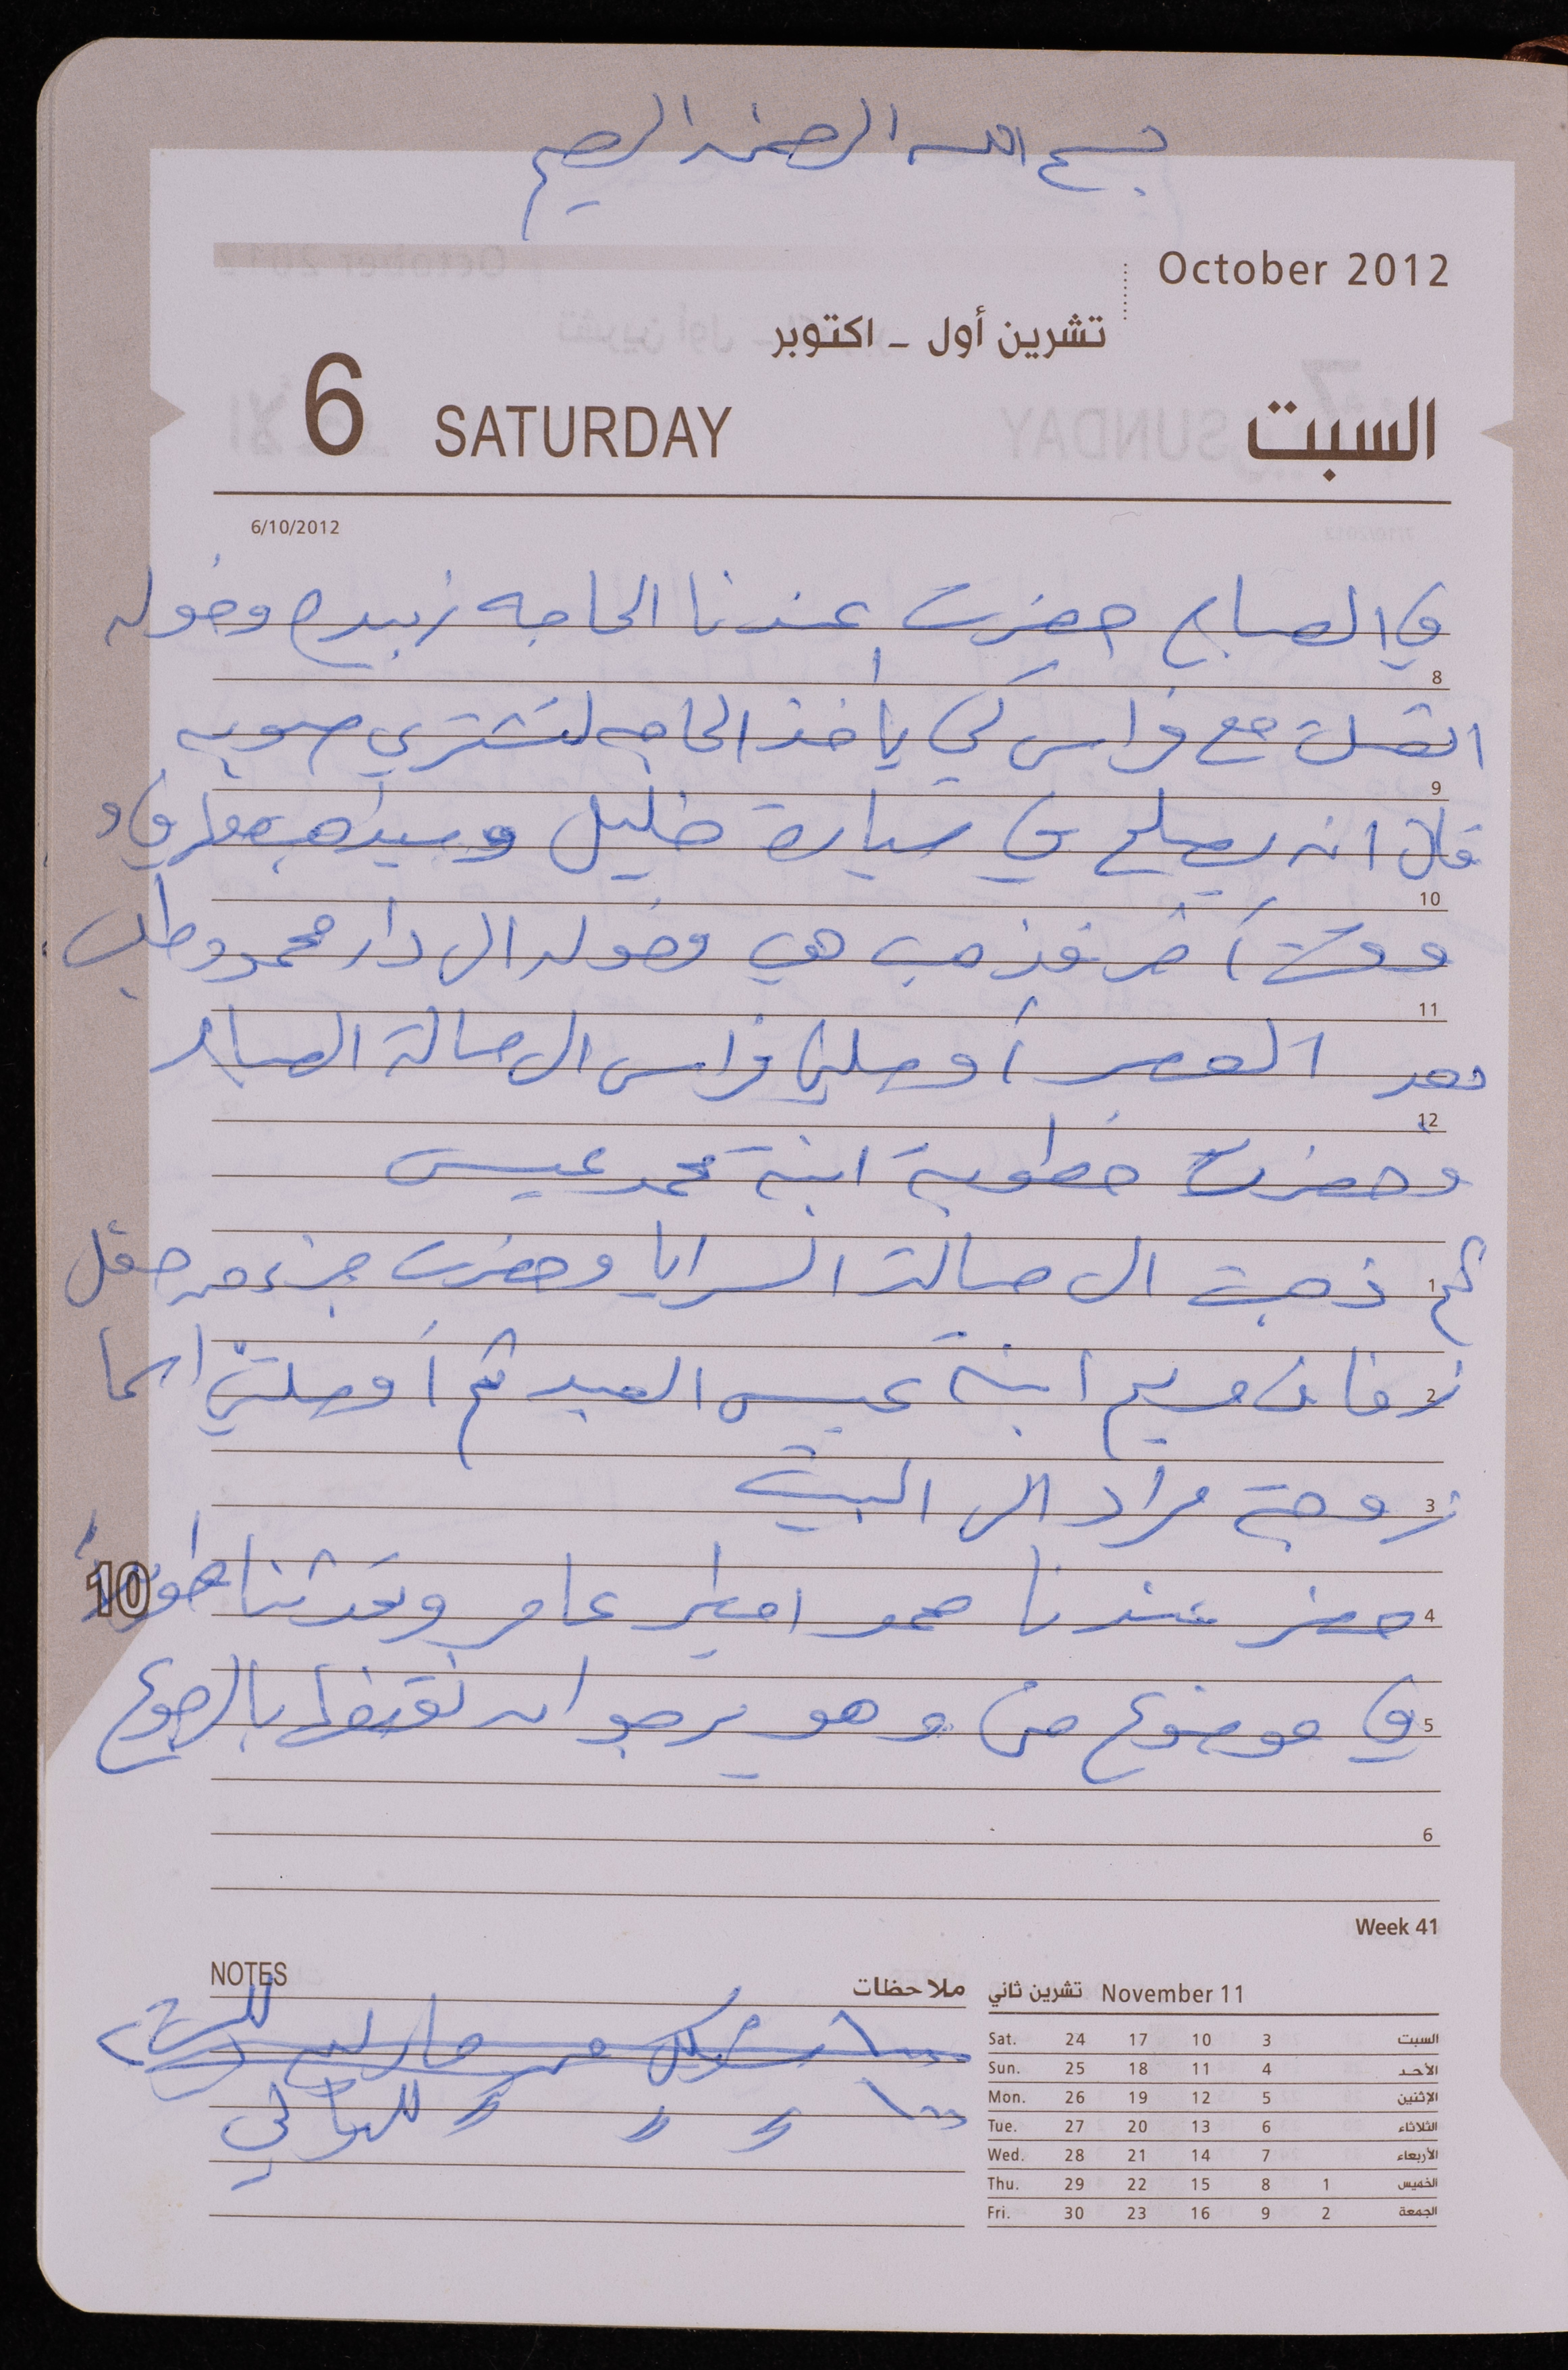 بسم الله الرحمن الرحيم
October 2012
تشرين أول - اكتوبر
6 SATURDAY السبت
6/10/2012
في الصباح حضرت عندنا الحاجه زبيده وخوله
8
اتصلت مع فراس كي يأخذ الحاجه لتشتري صوبه
9
قال انه يصلح في سيارة خليل وسيذهب معها في و
10
وقت آخر فذهب هي وخوله الى دار محمد وطلب
11
بعد العصر أوصلني فراس الى صالة الصياد
12
وحضرت خطوبة ابنة محمد عيسى
1 ثم ذهبت الى صالة السرايا وحضرت جزء من حفل
2 زفاف مريم ابنة عيسى العبد ثم أوصلتني اسما
3 زوجة مراد الى البيت
10
4 حضر عندنا حمو امطير عامر وتحدثنا طويلاً
5 في موضوع منى وهو يرجو ان نقنعها بالرجوع
6
Week 41
NOTES ملاحظات
November 11 تشرين ثاني
للبيت
للتوالي
Sat. 24 17 10 3 السبت
Sun. 25 18 11 4 الأحد
Mon. 26 19 12 5 الإثنين
Tue. 27 20 13 6 الثلاثاء
Wed. 28 21 14 7 الأربعاء
Thu. 29 22 15 8 1 الخميس
Fri. 30 23 16 9 2 الجمعة